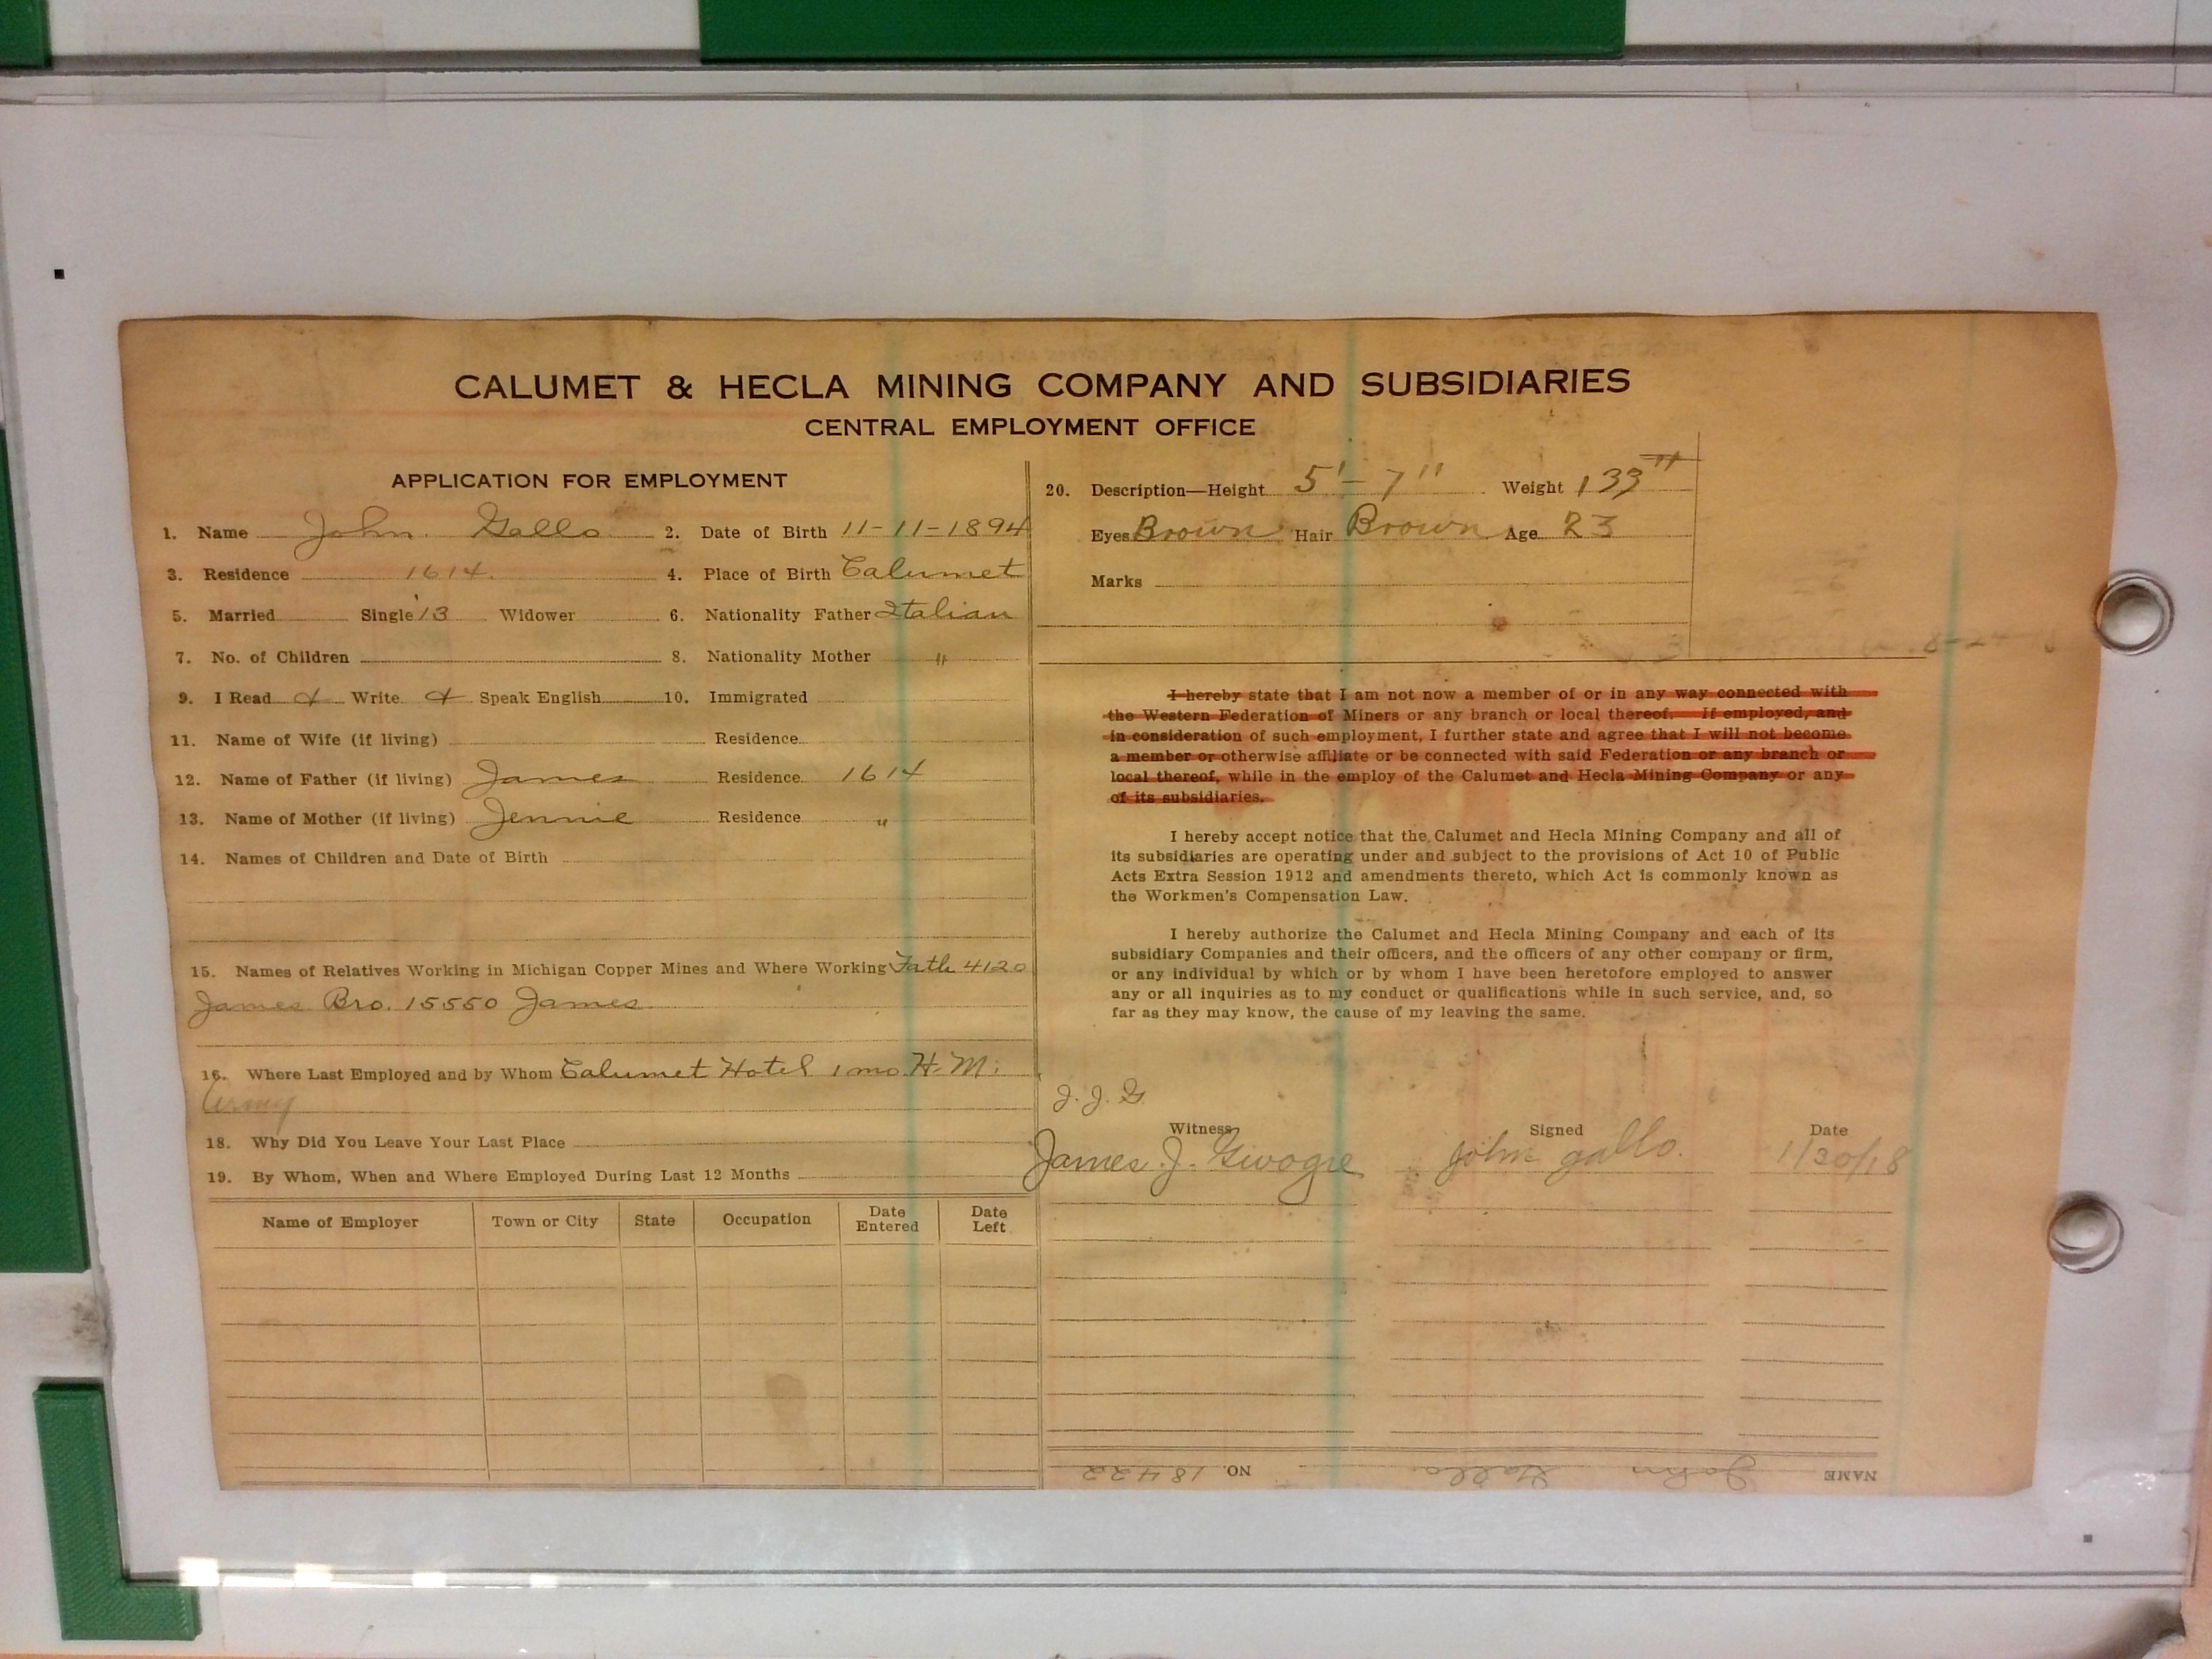 CALUMET & HECLA MINING COMPANY AND SUBSIDIARIES
CENTRAL EMPLOYMENT OFFICE
APPLICATION FOR EMPLOYMENT
1. Name John Gallo 2. Date of Birth 11-11-1894
3. Residence 1614 4. Place of Birth Calumet
5. Married Single 13 Widower 6. Nationality Father Italian
7. No. of Children 8. Nationality Mother "
9. I Read Write Speak English 10. Immigrated
11. Name of Wife (if living) Residence
12. Name of Father (if living) James Residence 1614
13. Name of Mother (if living) Jennie Residence "
14. Names of Children and Date of Birth
15. Names of Relatives Working in Michigan Copper Mines and Where Working Fath 4120
James Bro. 15550 James
16. Where Last Employed and by Whom Calumet Hotel 1 mo. H. M.
Army
18. Why Did You Leave Your Last Place
19. By Whom, When and Where Employed During Last 12 Months
Name of Employer Town or City State Occupation Date Entered Date Left
20. Description—Height 5'-7" Weight 133
Eyes Brown Hair Brown Age 23
Marks
I hereby state that I am not now a member of or in any way connected with
the Western Federation of Miners or any branch or local thereof. If employed, and
in consideration of such employment, I further state and agree that I will not become
a member or otherwise affiliate or be connected with said Federation or any branch or
local thereof, while in the employ of the Calumet and Hecla Mining Company or any
of its subsidiaries.
I hereby accept notice that the Calumet and Hecla Mining Company and all of
its subsidiaries are operating under and subject to the provisions of Act 10 of Public
Acts Extra Session 1912 and amendments thereto, which Act is commonly known as
the Workmen's Compensation Law.
I hereby authorize the Calumet and Hecla Mining Company and each of its
subsidiary Companies and their officers, and the officers of any other company or firm,
or any individual by which or by whom I have been heretofore employed to answer
any or all inquiries as to my conduct or qualifications while in such service, and, so
far as they may know, the cause of my leaving the same.
J. J. G
Witness Signed Date
James J. john gallo. 1/30/18
NAME John Gallo NO. 18422